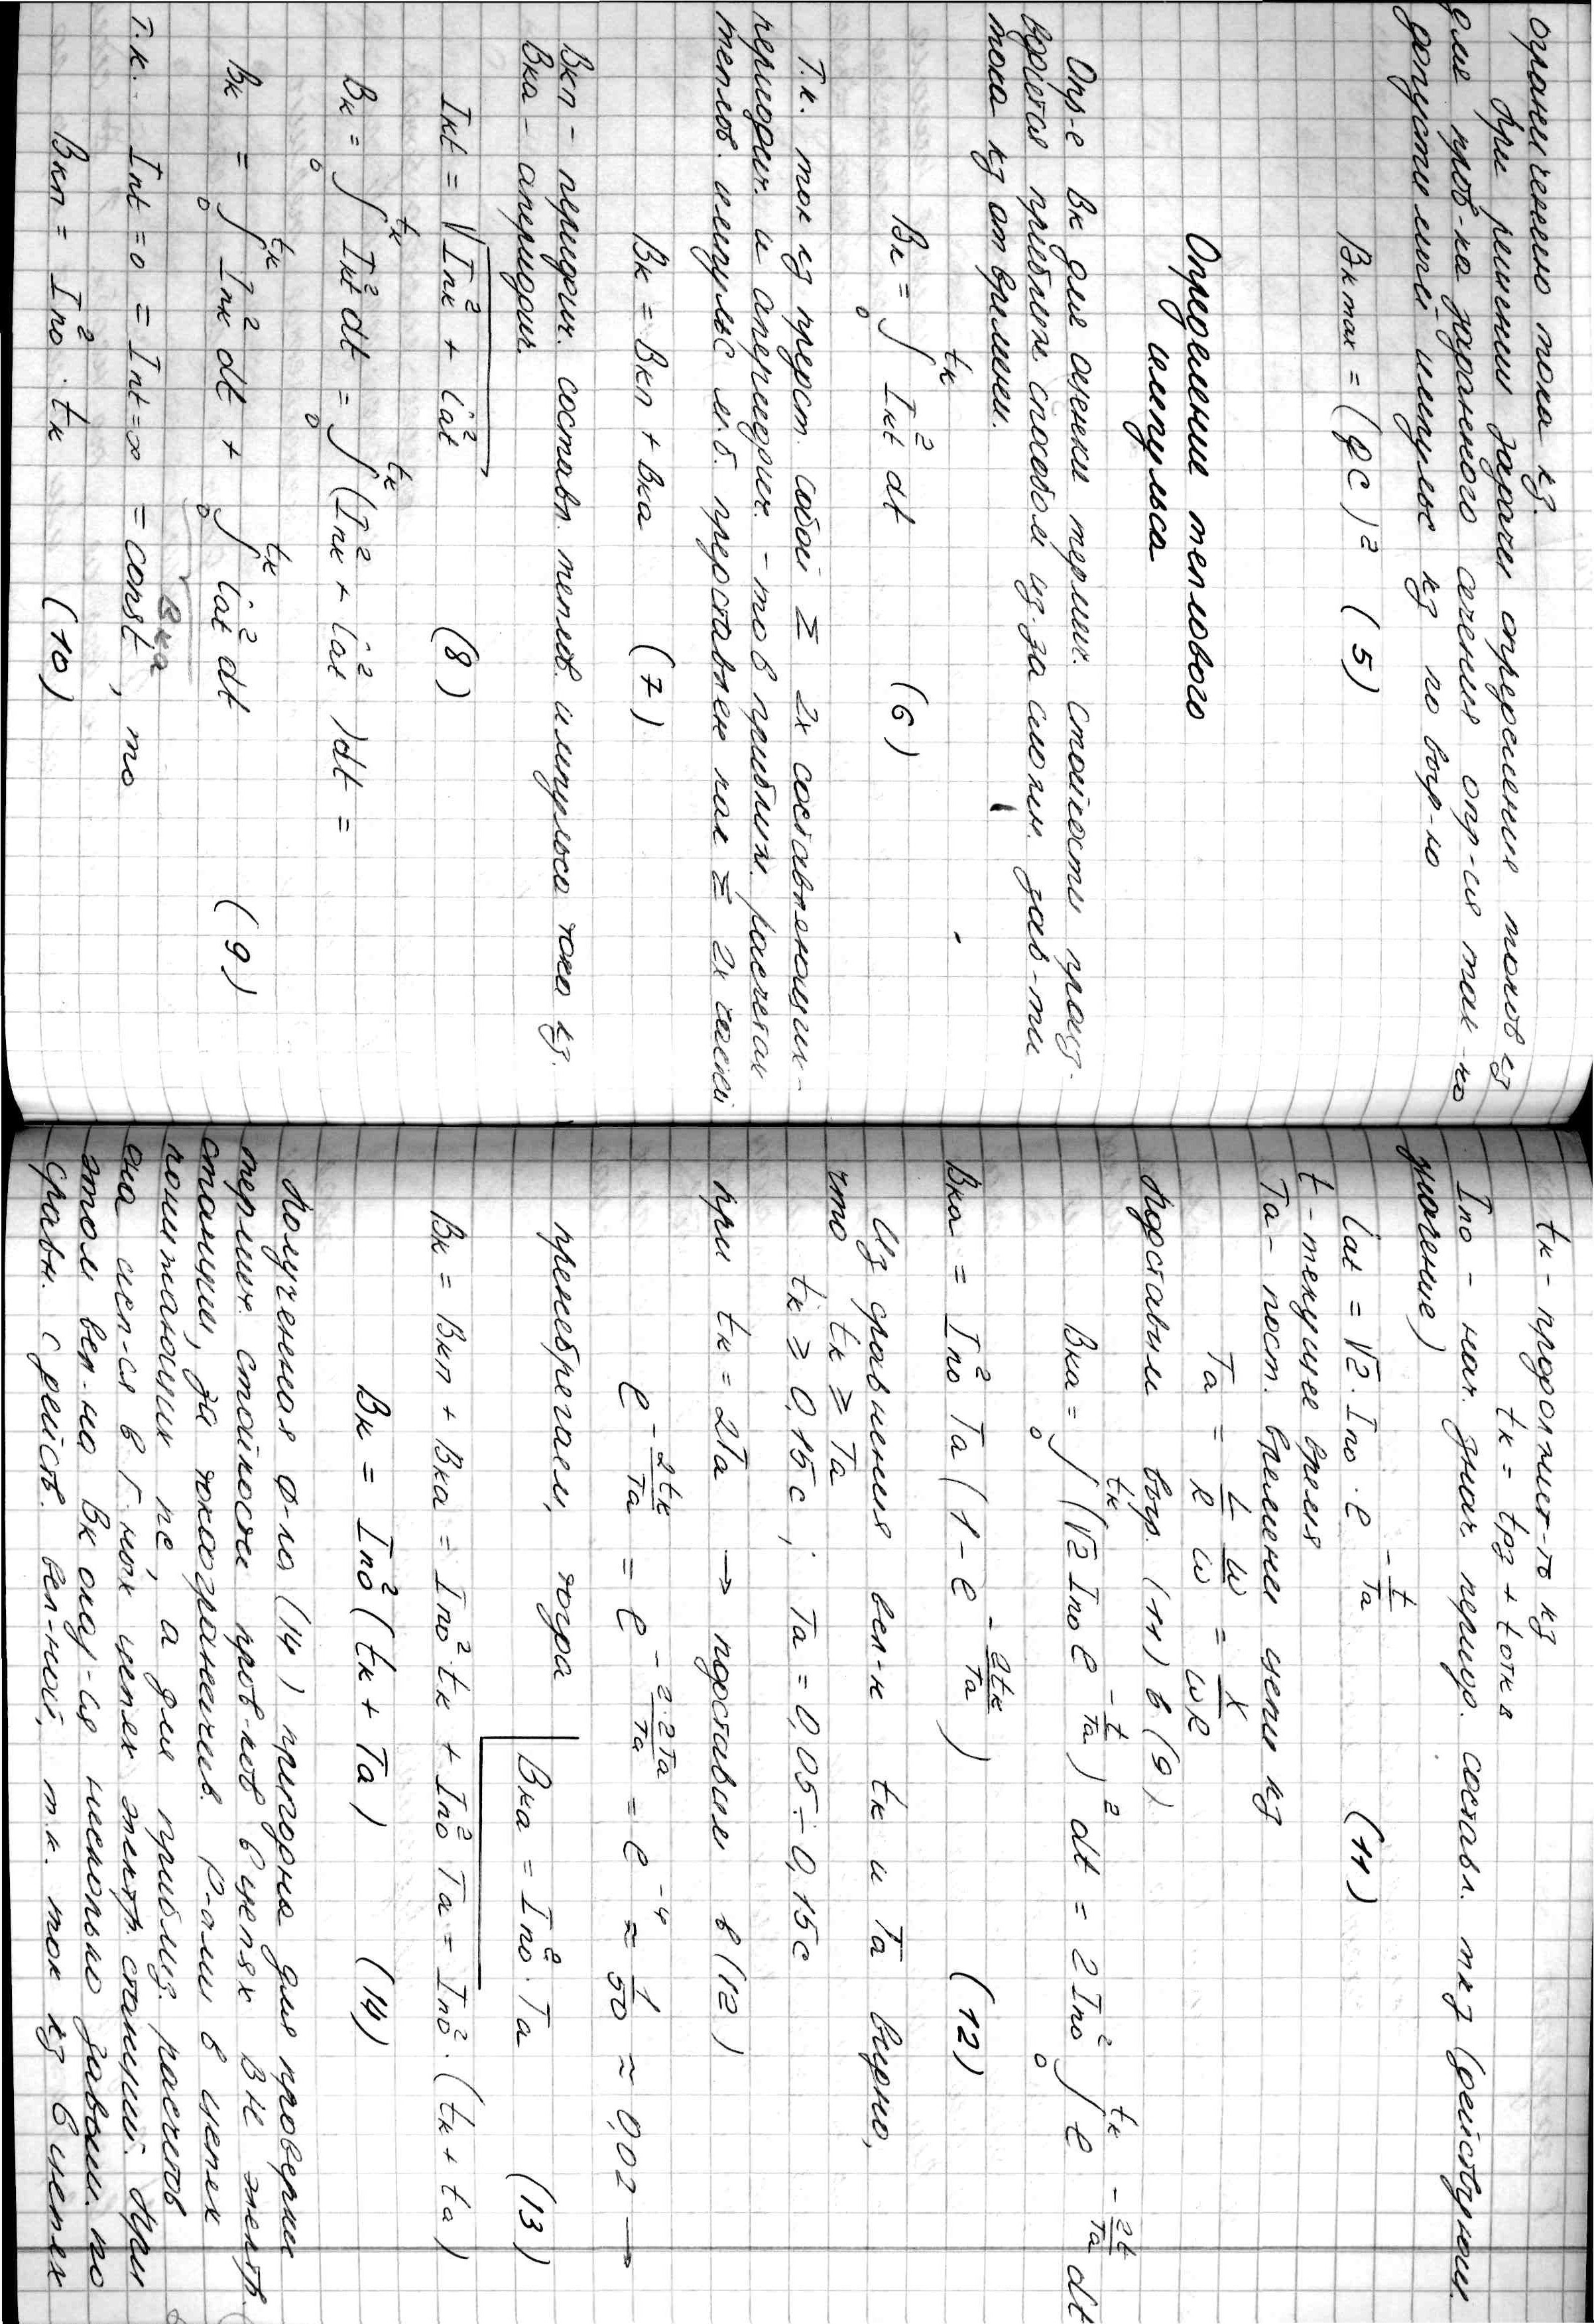 ограничению тока кз.
При решении задачи определения токов кз
для пров-ка заданного сечения опр-ся так-но
допустимый импульс кз по выр-ю
Bк max = (φC)² (5)
Определение теплового
импульса
Опр-е Bк для оценки термич. стойкости произ-
водится приближ. способом из-за сложн. зав-ти
тока кз от времени.
Bк = ∫₀^tк I²кt dt (6)
Т.к. ток кз предст собой Σ 2х составляющих -
периодич. и апериодич. - то в приближ. расчетах
теплов. импульс м.б. представлен как Σ 2х частей
Bк = Bкп + Bка (7)
Bкп - периодич. составл. теплов. импульса тока кз.
Bка - апериодич.
Iкt = √(I²пк + i²at) (8)
Bк = ∫₀^tк I²кt dt = ∫₀^tк (I²пк + i²at) dt =
Bк = ∫₀^tк I²пк dt + ∫₀^tк i²at dt (9)
Bка
т.к. Iпt=0 = Iпt=∞ = const, то
Bкп = I²по · tк (10)
tк - продолжит-ть кз
tк = tрз + tотк в
Iпо - нач. знач. период. составл. ткз (действующ.
значение)
iat = √2 · Iпо · e^(-t/Ta) (11)
t - текущее время
Ta - пост. времени цепи кз
Ta = L/R ω/ω = x/ωR
Подставим выр. (11) в (9)
Bка = ∫₀^tк (√2 Iпо e^(-t/Ta))² dt = 2I²по ∫₀^tк e^(-2t/Ta) dt
Bка = I²по Ta (1 - e^(-2tк/Ta)) (12)
Из сравнения вел-н tк и Ta видно,
что tк ≥ Ta
tк ≥ 0,15с ; Ta = 0,05÷0,15с
при tк = 2Ta → подставим в (12)
e^(-2tк/Ta) = e^(-2·2Ta/Ta) = e⁻⁴ ≈ 1/50 ≈ 0,02 →
пренебрегаем, тогда Bка = I²по · Ta (13)
Bк = Bкп + Bка = Iпо² · tк + I²по Ta = Iпо² · (tк + ta)
Bк = Iпо² (tк + Ta) (14)
Полученная ф-ла (14) пригодна для проверки
термич. стойкости пров-ков в цепях ВН электр.
станции, за токоограничив. р-ами в цепях
понижающих пс, а для приближ. расчетов
она исп-ся в Г. нок цепях электр. станций. При
этом вел-на Bк оказ-ся несколько завыш. по
сравн. с действ. вел-ной, т.к. ток кз в цепях